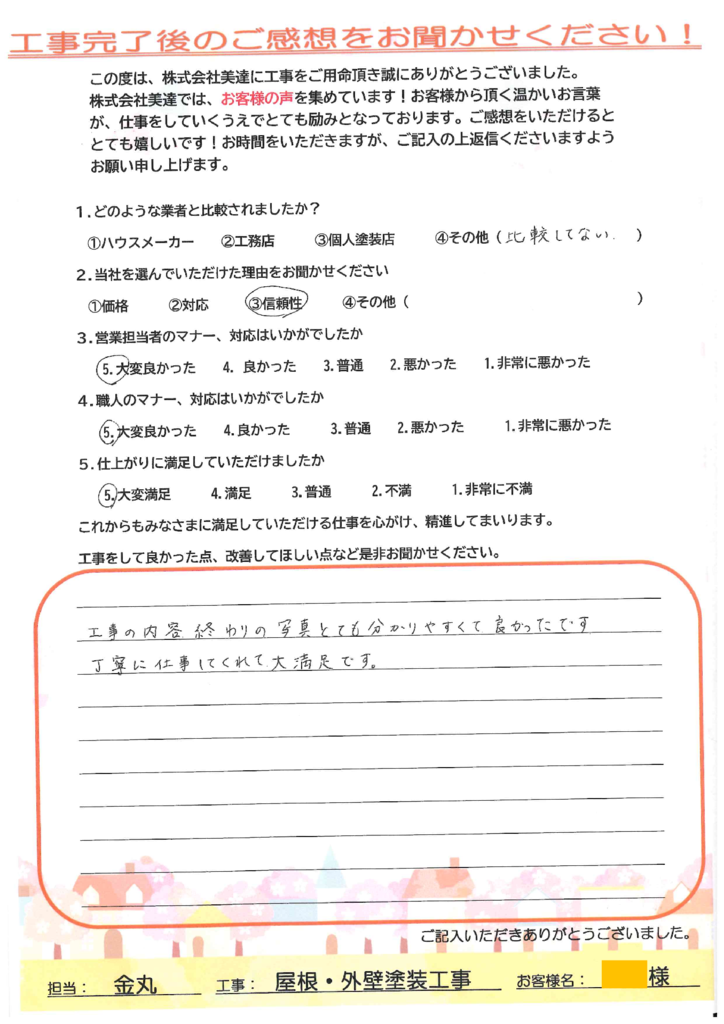 工事完了後のご感想をお聞かせください！
この度は、株式会社美達に工事をご用命頂き誠にありがとうございました。
株式会社美達では、お客様の声を集めています！お客様から頂く温かいお言葉
が、仕事をしていくうえでとても励みとなっております。ご感想をいただけると
とても嬉しいです！お時間をいただきますが、ご記入の上返信くださいますよう
お願い申し上げます。
1.どのような業者と比較されましたか？
①ハウスメーカー ②工務店 ③個人塗装店 ④その他（比較してない．）
2.当社を選んでいただけた理由をお聞かせください
①価格 ②対応 ③信頼性 ④その他（ ）
3.営業担当者のマナー、対応はいかがでしたか
5.大変良かった 4. 良かった 3.普通 2.悪かった 1.非常に悪かった
4.職人のマナー、対応はいかがでしたか
5.大変良かった 4.良かった 3.普通 2.悪かった 1.非常に悪かった
5.仕上がりに満足していただけましたか
5.大変満足 4.満足 3.普通 2.不満 1.非常に不満
これからもみなさまに満足していただける仕事を心がけ、精進してまいります。
工事をして良かった点、改善してほしい点など是非お聞かせください。
工事の内容 終わりの写真とても分かりやすくて良かったです
丁寧に仕事してくれて大満足です。
ご記入いただきありがとうございました。
担当： 金丸 工事： 屋根・外壁塗装工事 お客様名： 様